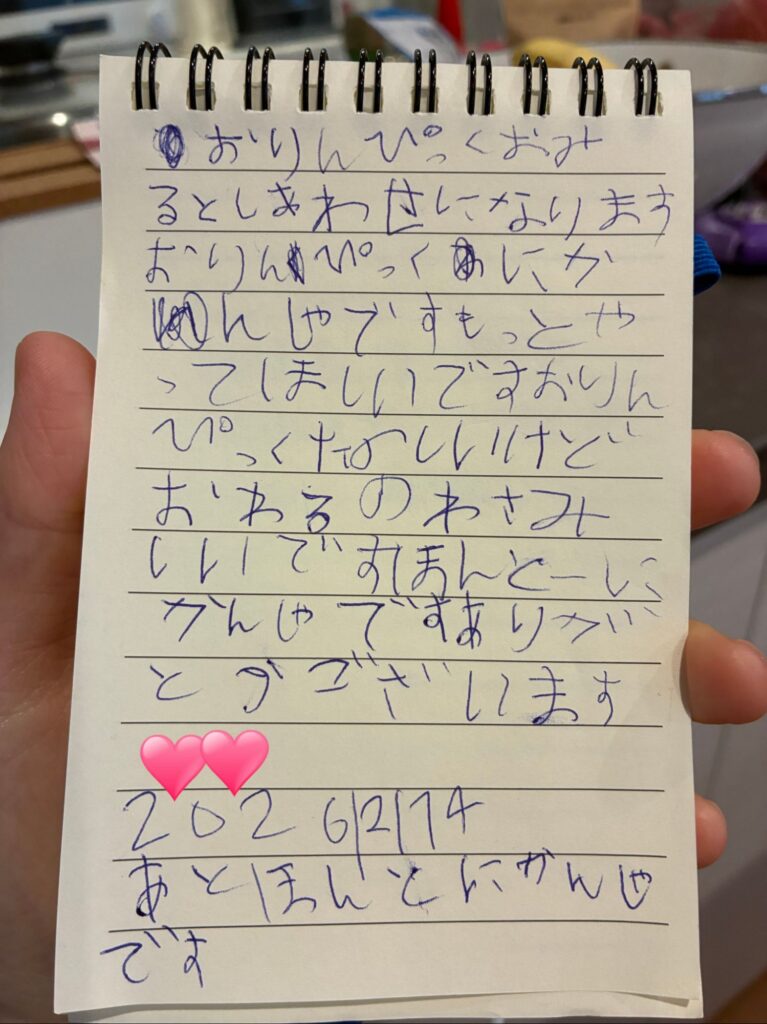 おりんぴっくおみ
るとしあわせになります
おりんぴっくにか
んしゃですもっとや
ってほしいですおりん
ぴっくたのしいけど
おわるのわさみ
しいですほんとーに
かんしゃですありが
とうございます
2026/2/14
あとほんとにかんしゃ
です